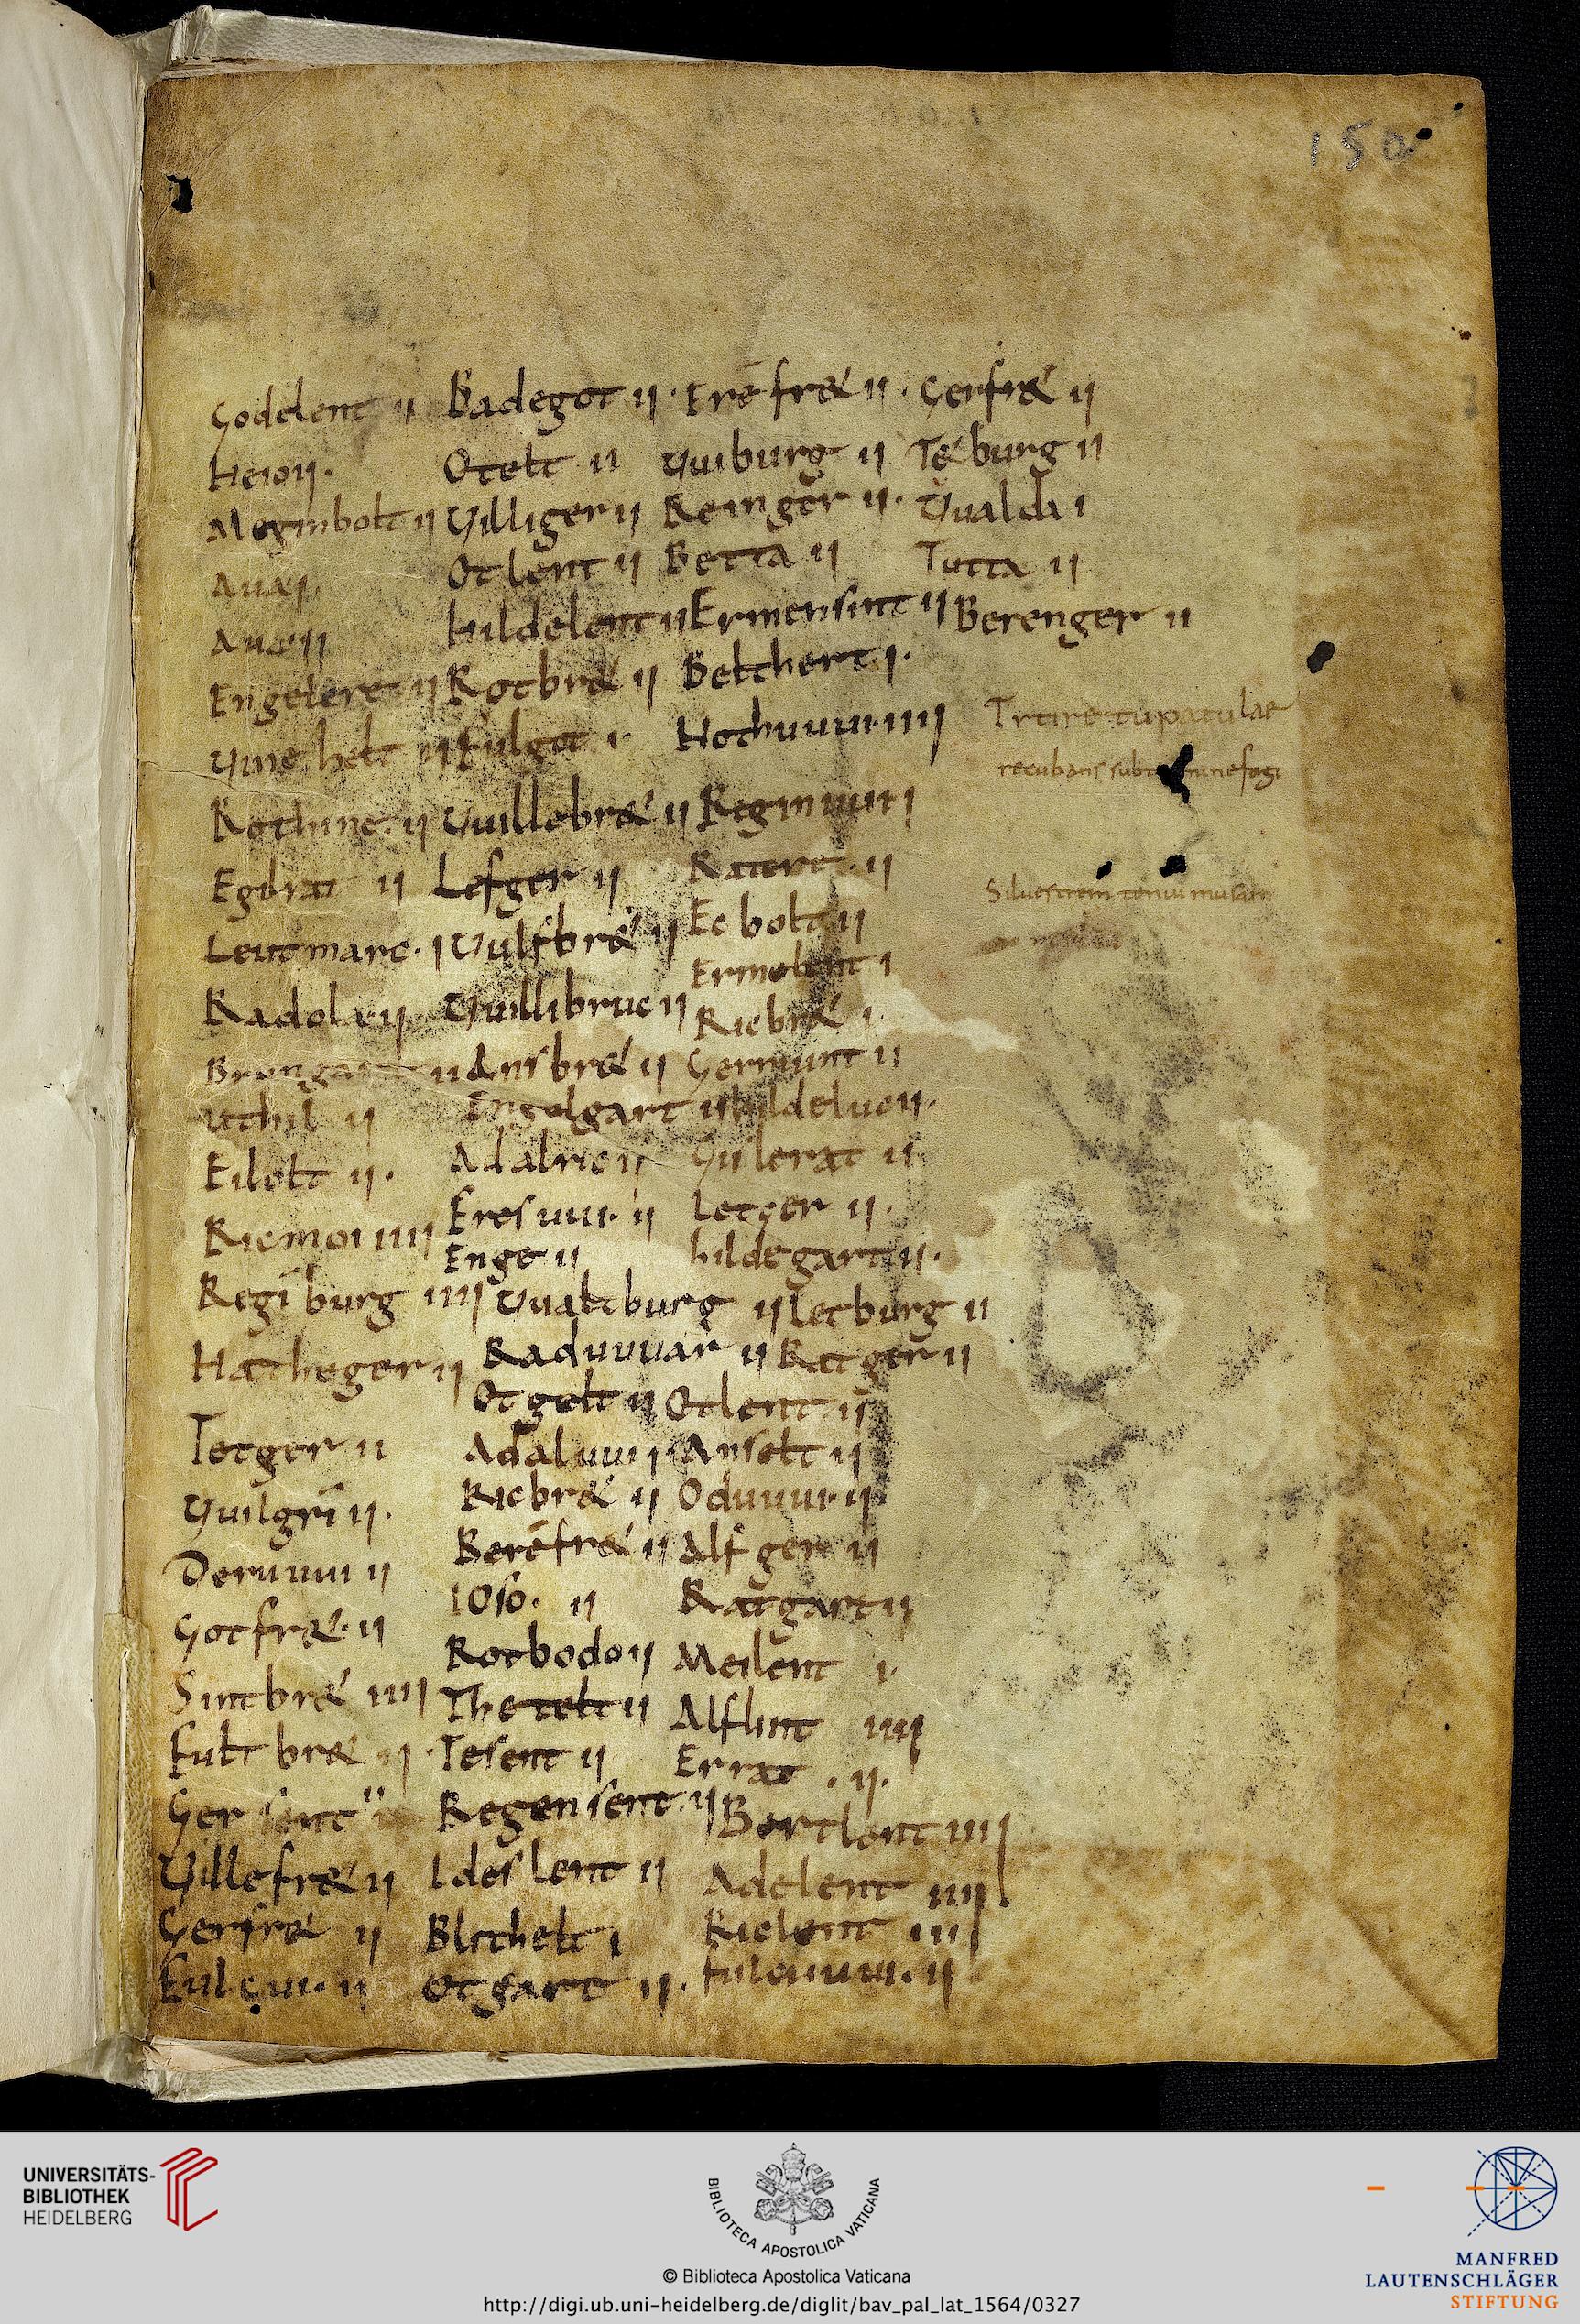 150
Goddent ii Badegot ii · Erēfr& ii · Gerfr& ii
Heio ii · Otelt ii Vuiburg ii Te&burg ii
Meginbolt ii Uilliger ii Reinger ii · Vualda i
Aua i · Otlent ii Betta ii Tutta ii
Aue ii Hildelent ii Ermensint ii Berenger ii
Rotbr& ii Beltchert · i ·
fulgot i · Hothuuui · iiii
Tytire tu patulae
recubans sub fagi
Rothine · ii Vuillebr& ii Reginuui i
Egbrat ii Lefger ii Ratere · ii
Silvestrem tenui musam
Leutmare · i Vulfbr& ii Ecbolt ii
Ermelent i
Vuillibruc ii Ricbr& i ·
ii Ansbr& ii Germunt ii
Uthil ii Engelgart ii Hildeluc ii ·
Eilolt ii · Adalric ii Gislerat ii
Ricmoi iiii Eresuui · ii Letger ii ·
Enge ii hildegart ii ·
Regīburg iiii Vualtburg ii Letburg ii
Hatheger ii Raduuuar ii Ratger ii
Otgelt ii Otlent ii
Tetger ii Adaluui ii Anselt ii
Vuilgrī ii · Ricbr& ii Oduuui · ii
Deruuui ii Berēfr& ii Alfger ii
Gotfr& · ii Ioso · ii Ratgart ii
Rotbodo ii Meilent i ·
Sintbr& iiii Thetelt ii Alflint iiii
Fultbr& ii · Tesent ii Errat · ii ·
Gersent ii Regensent · ii Bertlent iiii
Uillefr& ii Ideslent ii Adelent iiii
Gerfr& ii Blithelt i Riclent iiii
Otgart ii ·
UNIVERSITÄTS-
BIBLIOTHEK
HEIDELBERG
BIBLIOTECA APOSTOLICA VATICANA
© Biblioteca Apostolica Vaticana
http://digi.ub.uni-heidelberg.de/diglit/bav_pal_lat_1564/0327
MANFRED
LAUTENSCHLÄGER
STIFTUNG